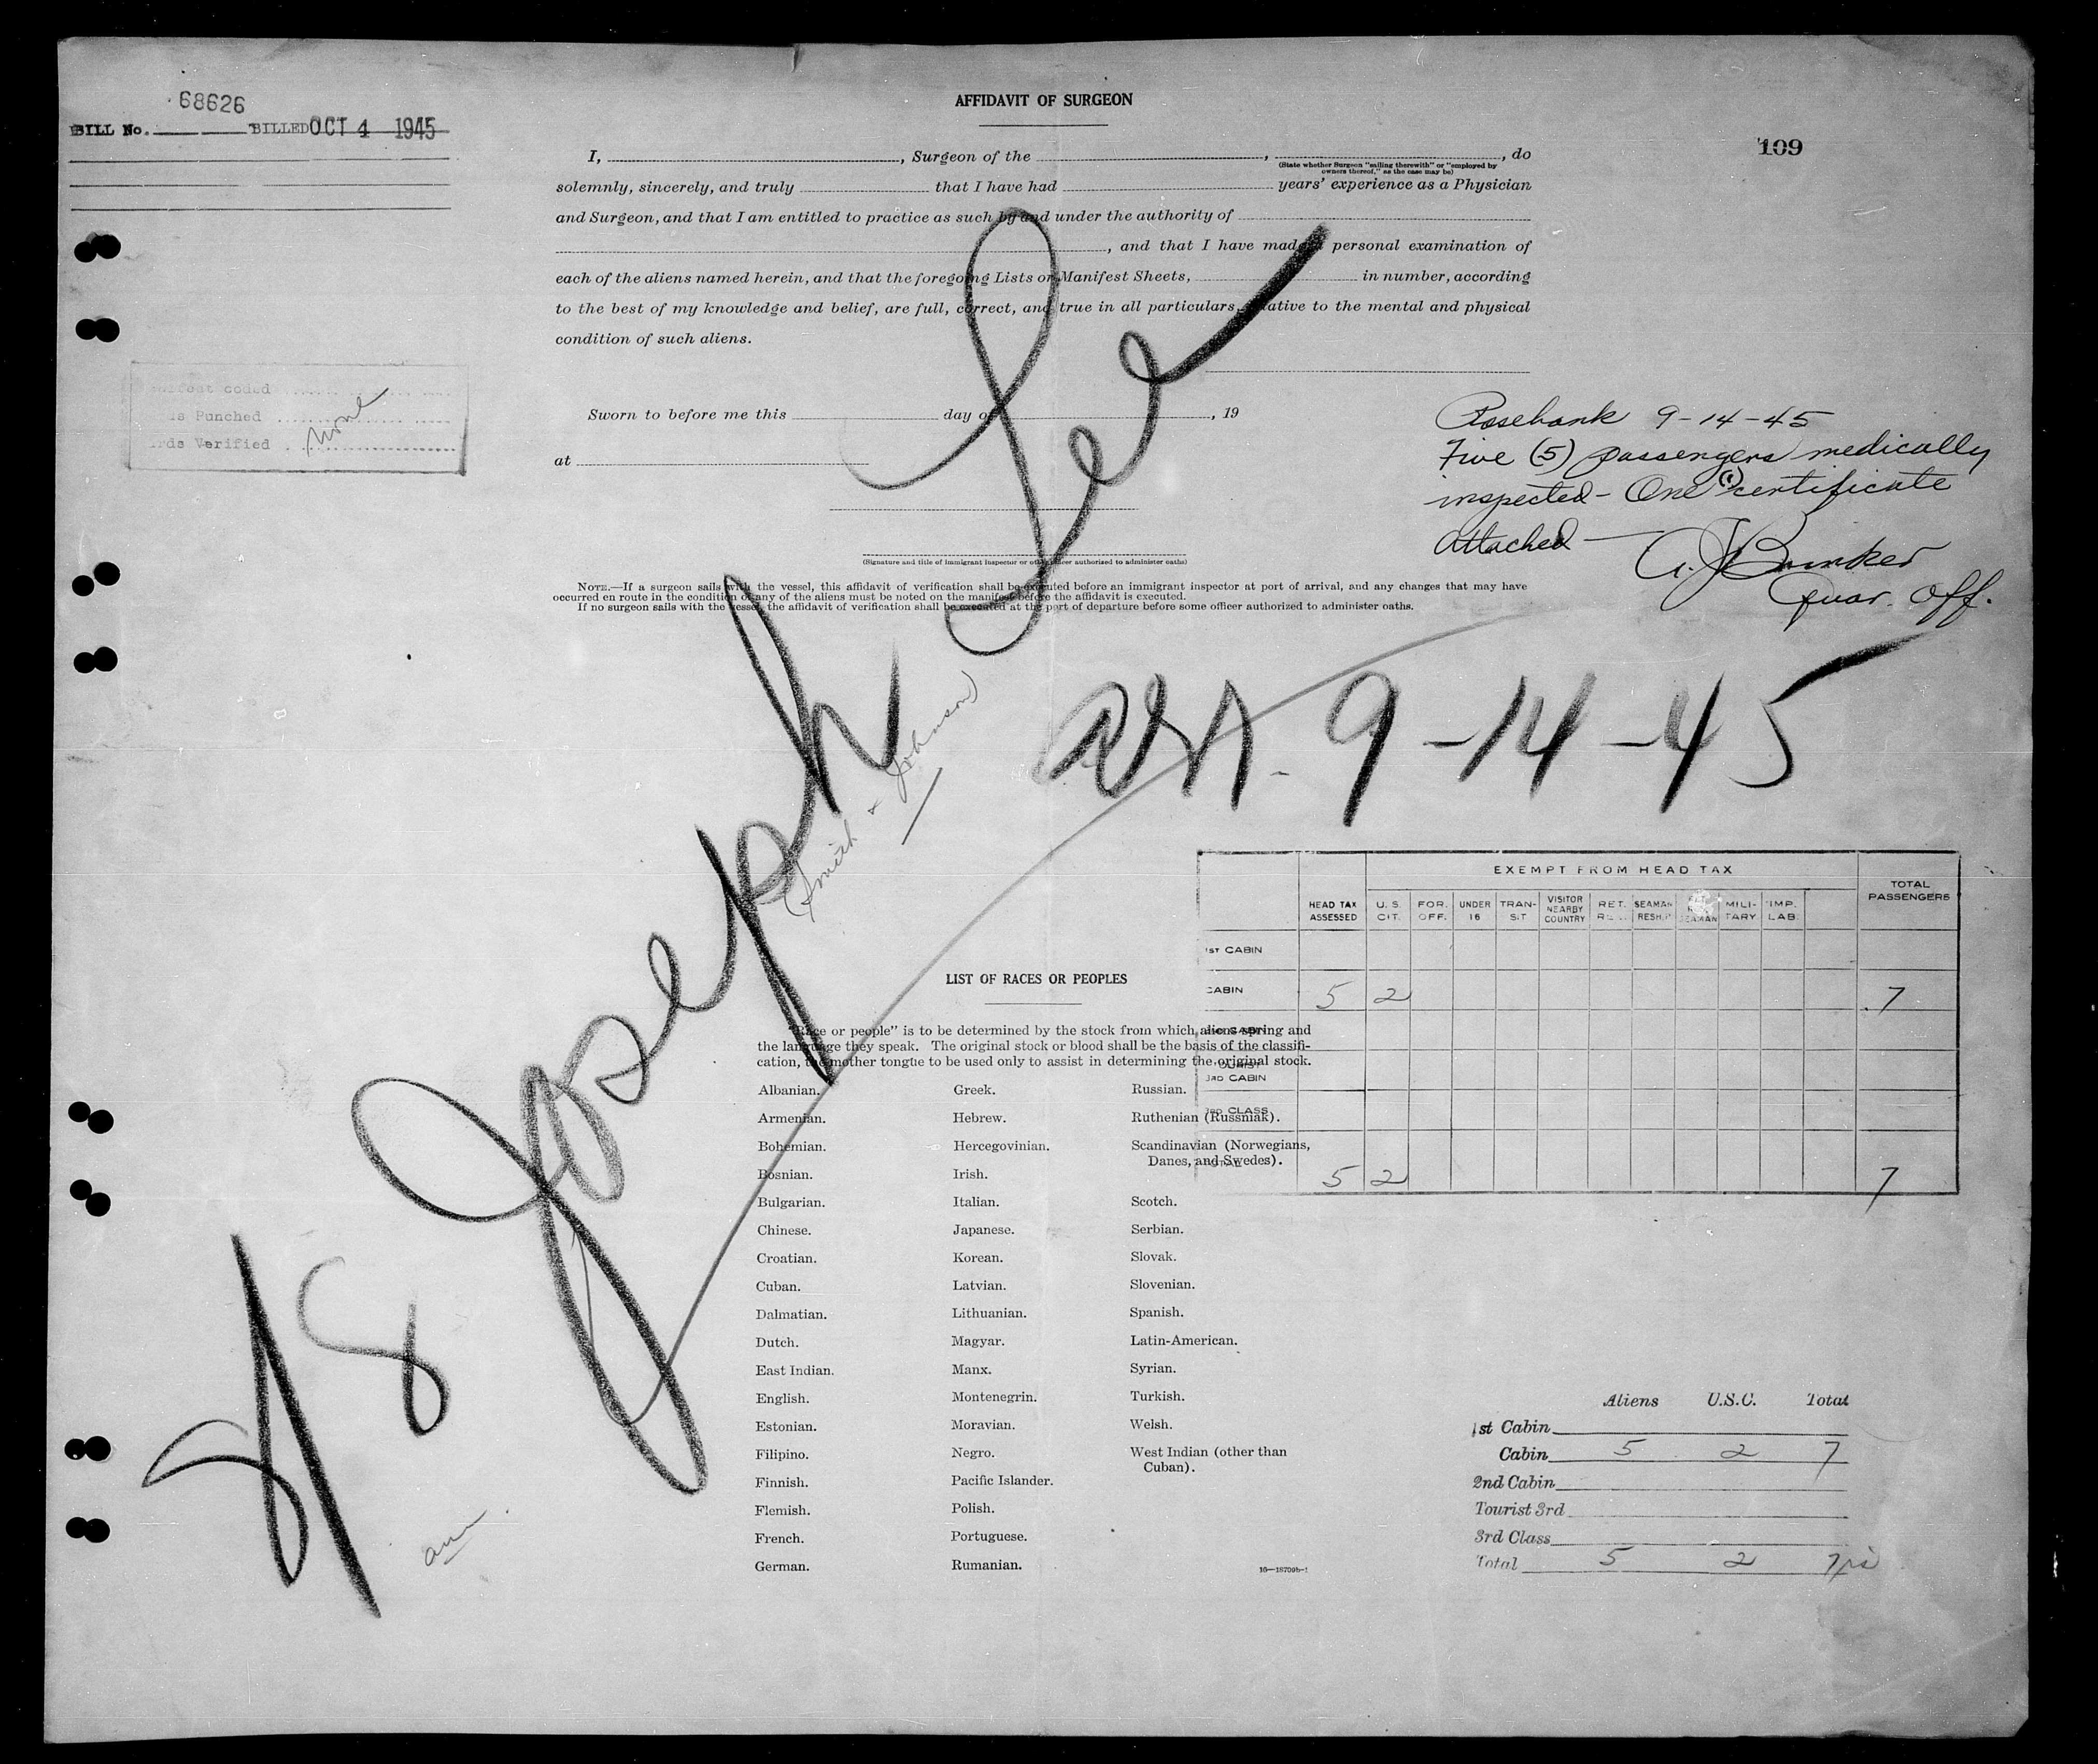 68626
BILL No. BILLED OCT 4 1945
109
AFFIDAVIT OF SURGEON
I, , Surgeon of the , , do
(State whether Surgeon "sailing therewith" or "employed by
owners thereof," as the case may be)
solemnly, sincerely, and truly that I have had years' experience as a Physician
and Surgeon, and that I am entitled to practice as such by and under the authority of
, and that I have made a personal examination of
each of the aliens named herein, and that the foregoing Lists or Manifest Sheets, in number, according
to the best of my knowledge and belief, are full, correct, and true in all particulars relative to the mental and physical
condition of such aliens.
Sworn to before me this day of , 19
at
(Signature and title of immigrant inspector or other officer authorized to administer oaths)
NOTE.—If a surgeon sails with the vessel, this affidavit of verification shall be executed before an immigrant inspector at port of arrival, and any changes that may have
occurred en route in the condition of any of the aliens must be noted on the manifest before the affidavit is executed.
If no surgeon sails with the vessel, the affidavit of verification shall be executed at the port of departure before some officer authorized to administer oaths.
coded
Punched
Verified
None
Rosebank 9-14-45
Five (5) passengers medically
inspected - One (1) certificate
attached —
Quar. Off.
S/S Joseph Lee
(Smith & Johnson)
arr. 9-14-45
EXEMPT FROM HEAD TAX
HEAD TAX ASSESSED U. S. CIT. FOR. OFF. UNDER 16 TRAN-S.T VISITOR NEARBY COUNTRY RET. SEAMAN RESH.P SEAMAN MILI-TARY IMP. LAB. TOTAL PASSENGERS
1ST CABIN
CABIN 5 2 7
3RD CABIN
3RD CLASS
5 2 7
LIST OF RACES OR PEOPLES
"Race or people" is to be determined by the stock from which aliens spring and
the language they speak. The original stock or blood shall be the basis of the classifi-
cation, the mother tongue to be used only to assist in determining the original stock.
Albanian. Greek. Russian.
Armenian. Hebrew. Ruthenian (Russniak).
Bohemian. Hercegovinian. Scandinavian (Norwegians,
Danes, and Swedes).
Bosnian. Irish.
Bulgarian. Italian. Scotch.
Chinese. Japanese. Serbian.
Croatian. Korean. Slovak.
Cuban. Latvian. Slovenian.
Dalmatian. Lithuanian. Spanish.
Dutch. Magyar. Latin-American.
East Indian. Manx. Syrian.
English. Montenegrin. Turkish.
Estonian. Moravian. Welsh.
Filipino. Negro. West Indian (other than
Cuban).
Finnish. Pacific Islander.
Flemish. Polish.
French. Portuguese.
German. Rumanian.
16—18709b-1
Aliens U.S.C. Total
1st Cabin
Cabin 5 2 7
2nd Cabin
Tourist 3rd
3rd Class
Total 5 2 7